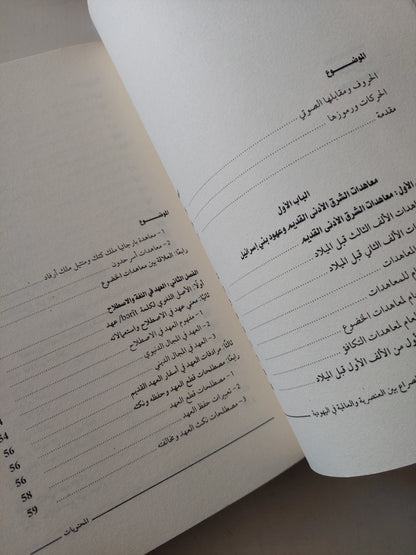 الموضــوع
الحروف ومقابلها الصوتي
الحركات ورموزها
مقدمة
الباب الأول
معاهدات الشرق الأدنى القديم وعهود بني إسرائيل
الأول: معاهدات الشرق الأدنى القديم
معاهدات الألف الثالث قبل الميلاد
معاهدات الألف الثاني قبل الميلاد
لمعاهدات
للمعاهدات
العام لمعاهدات الخضوع
العام لمعاهدات التكافؤ
الأول من الألف الأول قبل الميلاد
الصراع بين العنصرية والعالمية في اليهودية
الموضــوع
1- معاهدة بارجاتيا ملك كتك ومتيئل ملك أرفاد
2- معاهدات أسرحدون
رابعًا: العلاقة بين معاهدات الخضوع
الفصل الثاني: العهد في اللغة والاصطلاح
أولًا: الأصل اللغوي لكلمة berit/ عهد
ثانيًا: معنى عهد في الاصطلاح واستعمالاته
1- مفهوم العهد في الاصطلاح
2- العهد في المجال الدنيوي
3- العهد في المجال الديني
ثالثًا: مرادفات العهد في أسفار العهد القديم
رابعًا: مصطلحات قطع العهد وحفظه ونكثه
1- مصطلحات قطع العهد
2- تعبيرات حفظ العهد
3- مصطلحات نكث العهد ومخالفته
4
54
56
56
58
59
المحتويات